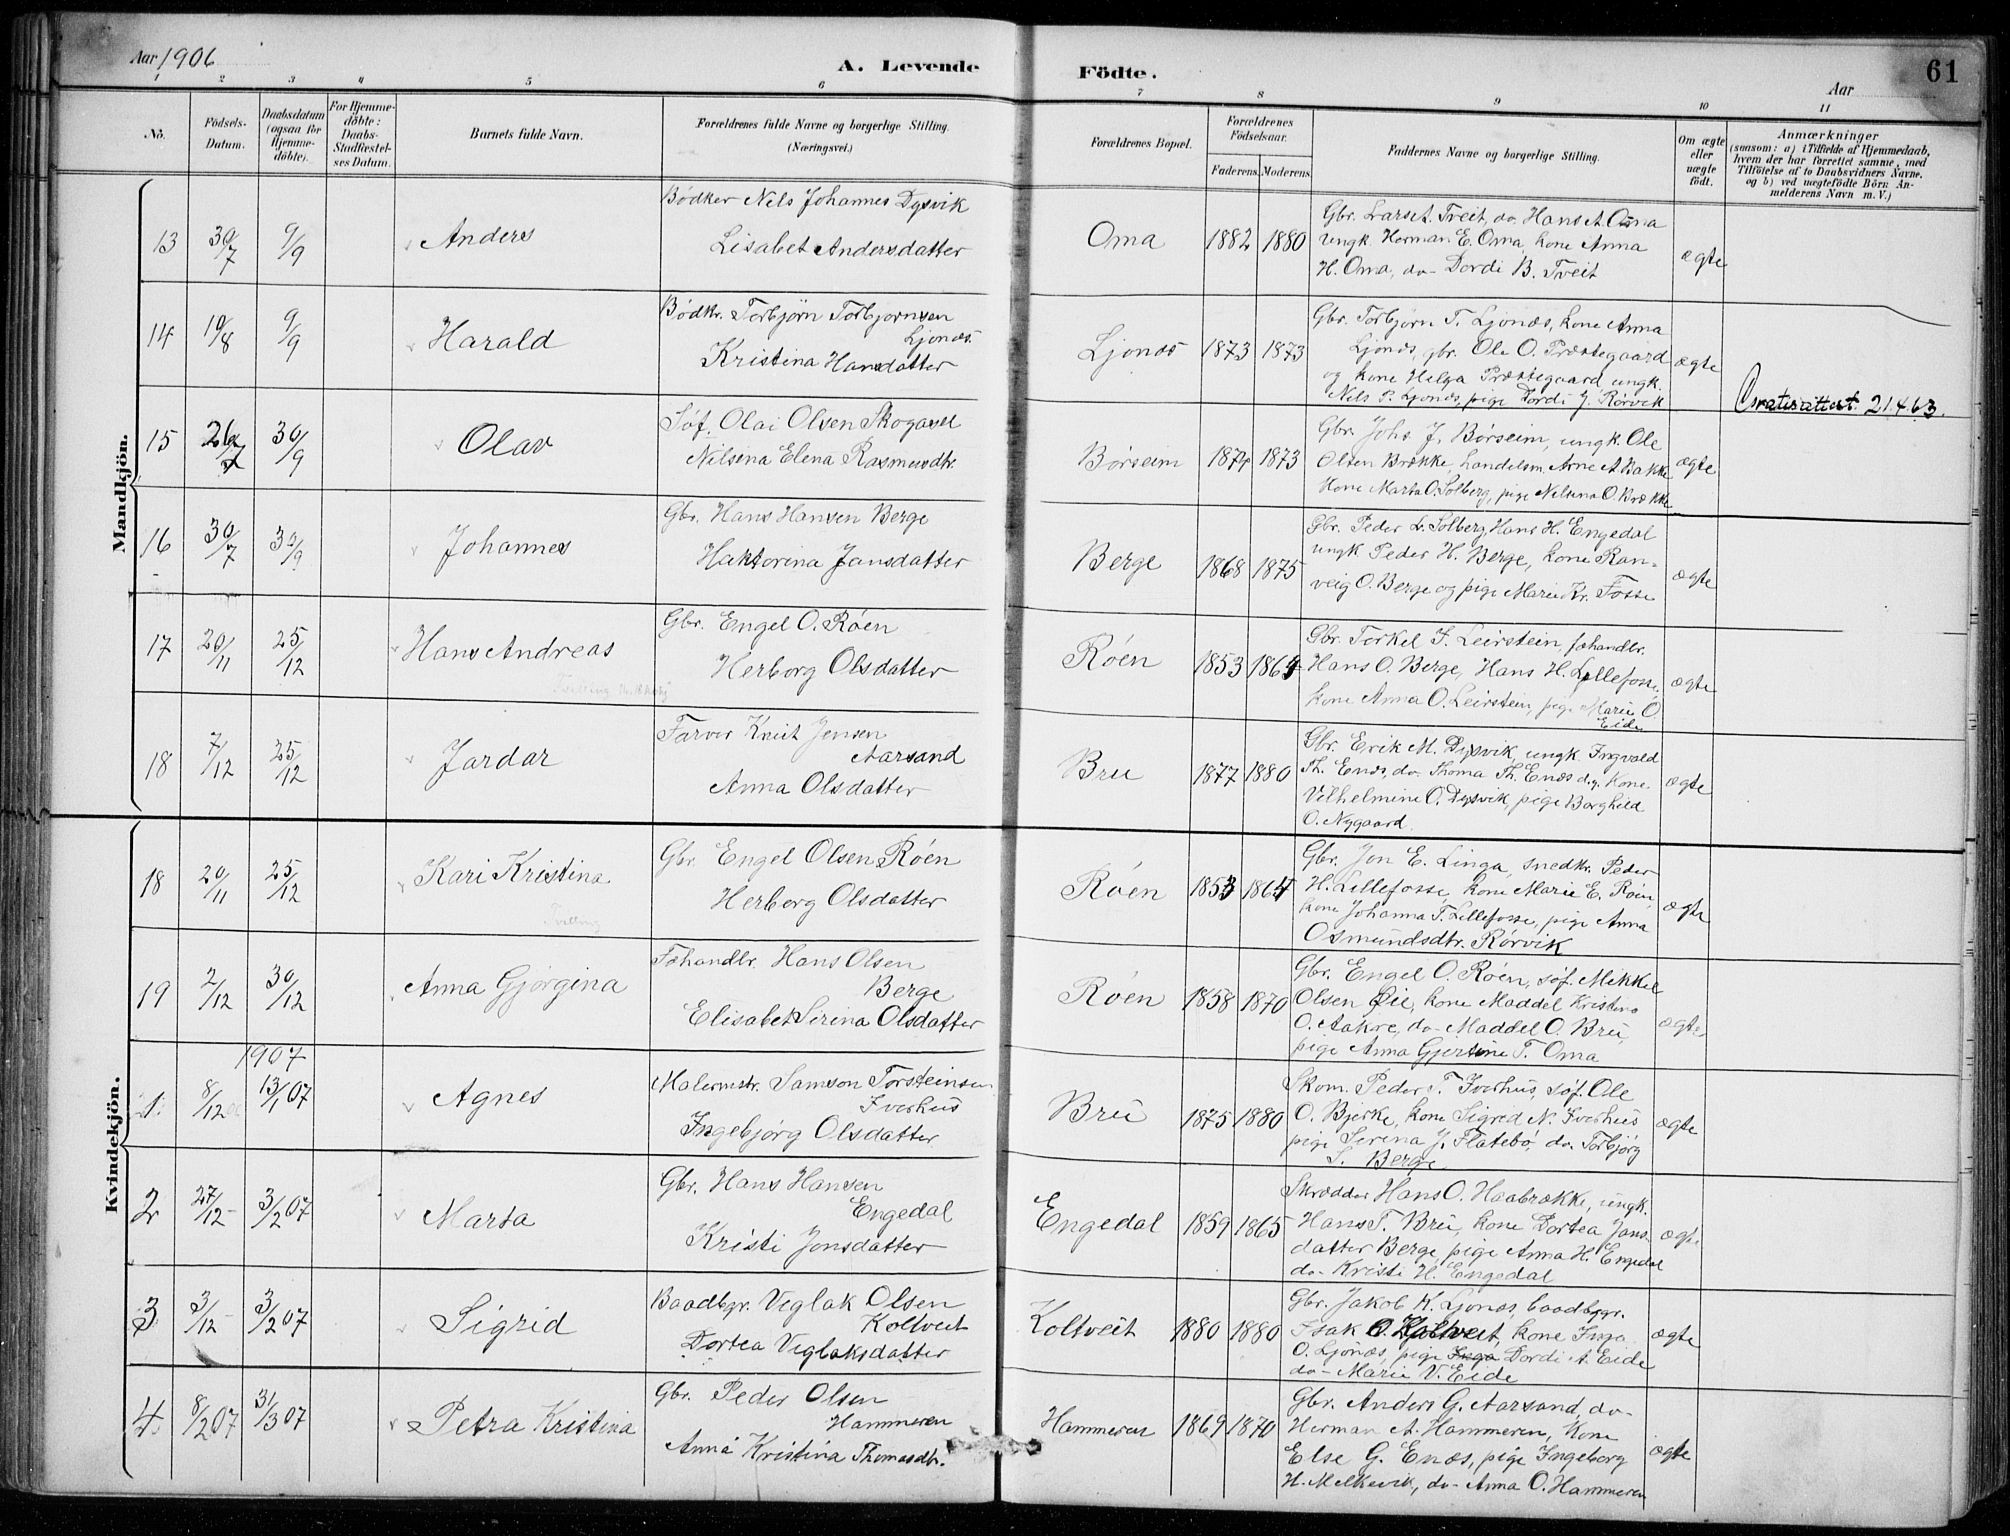 Aar 1906
A. Levende Födte.
Aar
61
1 2 3 4 5 6 7 8 9 10 11
No.
Födsels-Datum.
Daabsdatum (ogsaa för Hjemme-döbte).
For Hjemme-döbte: Daabs-Stadfæstel-ses Datum.
Barnets fulde Navn.
Forældrenes fulde Navne og borgerlige Stilling. (Næringsvei.)
Forældrenes Bopæl.
Forældrenes Födselsaar.
Faderens. Moderens.
Faddernes Navne og borgerlige Stilling.
Om ægte eller uægte födt.
Anmærkninger
(saasom: a) i Tilfælde af Hjemmedaab,
hvem der har forrettet samme, med
Tilföielse af to Daabsvidners Navne.
og b) ved uægtefödte Börn An-
melderens Navn m. V.)
Mandkjön.
13 30/7 9/9 Anders
Bödker Nils Johannes Dysvik
Lisabet Andersdatter
Oma 1882 1880
Gbr. Lars t. Tveit, do. Hans A. Oma
ungk. Herman E. Oma, kone Anna
H. Oma, do- Dordi B. Tveit
ægte
14 10/8 9/9 Harald
Bödkr. Torbjörn Torbjornsen
Ljonæs
Kristina Hansdatter
Ljonæs 1873 1873
Gbr. Torbjørn T. Ljonæs, kone Anna
Ljonæs, gbr. Ole O. Præstegaard
og kone Helga Præstegaard, ungk.
Nils P. Ljonæs, pige Dordi J. Rörvik
ægte
21.4.63.
15 26/7 30/9 Olav
Söf. Olai Olsen Skogasel
Nilsena Elena Rasmusdtr.
Börseim 1874 1873
Gbr. Johs. J. Börseim, ungk. Ole
Olsen Brække, handelsm. Arne A. Bakke
Kone Marta O. Solberg, pige Nilsina O. Brække
ægte
16 30/7 30/9 Johannes
Gbr. Hans Hansen Berge
Haktorina Jansdatter
Berge 1868 1875
Gbr. Peder L. Solberg, Hans H. Engedal
ungk Peder H. Berge, kone Ran-
veig O. Berge og pige Marie Kr. Fosse
ægte
17 20/11 25/12 Hans Andreas
Gbr. Engel O. Röen
Herborg Olsdatter
Röen 1853 1864
Gbr. Torkel J. Leirstein, fæhandlr.
Hans O. Berge, Hans H. Lillefosse,
kone Anna O. Leirstein, pige Marie O.
Eide
ægte
18 7/12 25/12 Jardar
Farver Knut Jensen
Aarsand
Anna Olsdatter
Bru 1877 1880
Gbr. Erik M. Dysvik, ungk. Ingvald
Th. Enæs, do. Thoma Th. Enæs d.y. Kone
Vilhelmine O. Dysvik, pige Borghild
O. Nygaard.
ægte
Kvindekjön.
18 20/11 25/12 Kari Kristina
Tvilling
Gbr. Engel Olsen Röen
Herborg Olsdatter
Röen 1853 1864
Gbr. Jon E. Linga, snedkr. Peder
H. Lillefosse, kone Marie E. Röen,
kone Johanna T. Lillefosse, pige Anna
Osmundsdtr. Rörvik
ægte
19 2/12 30/12 Anna Gjörgina
Fæhandlr. Hans Olsen
Berge
Elisabet Serina Olsdatter
Röen 1858 1870
Gbr. Engel O. Röen, söf. Mikkel
Olsen Øie, kone Maddel Kristina
O. Aakre, do- Maddel O. Bru,
pige Anna Gjertine T. Oma
ægte
1907
1. 8/12 06 13/1 07 Agnes
Malermstr. Samson Torsteinsen
Iverhus
Ingebjörg Olsdatter
Bru 1875 1880
Skom. Peder T. Iverhus, söf. Ole
O. Bjerke, kone Sigrid N. Iverhus
pige Serina J. Flatebö, do. Torbjörg
S. Berge
ægte
2 27/12- 3/2 07 Marta
Gbr. Hans Hansen
Engedal
Kristi Jonsdatter
Engedal 1859 1865
Skrædder Hans O. Haabrække, ungk.
Hans T. Bru, kone Dortea Jans-
datter Berge, pige Anna H. Engedal
do- Kristi H. Engedal
ægte
3 3/12- 3/2 07 Sigrid
Baadbgr. Viglak Olsen
Koltveit
Dortea Viglaksdatter
Koltveit 1880 1880
Gbr. Jakob K. Ljonæs, baadbygr.
Isak O. Koltveit, kone Inga
O. Ljonæs, pige Dordi A. Eide
do- Marie V. Eide
ægte
4. 8/2 07 31/3 07 Petra Kristina
Gbr. Peder Olsen
Hammeren
Anna Kristina Thomasdtr.
Hammeren 1869 1870
Gbr. Anders G. Aarsand, do-
Herman A. Hammeren, Kone
Else G. Enæs, pige Ingeborg
H. Melkevik, do- Anna O. Hammeren
ægte